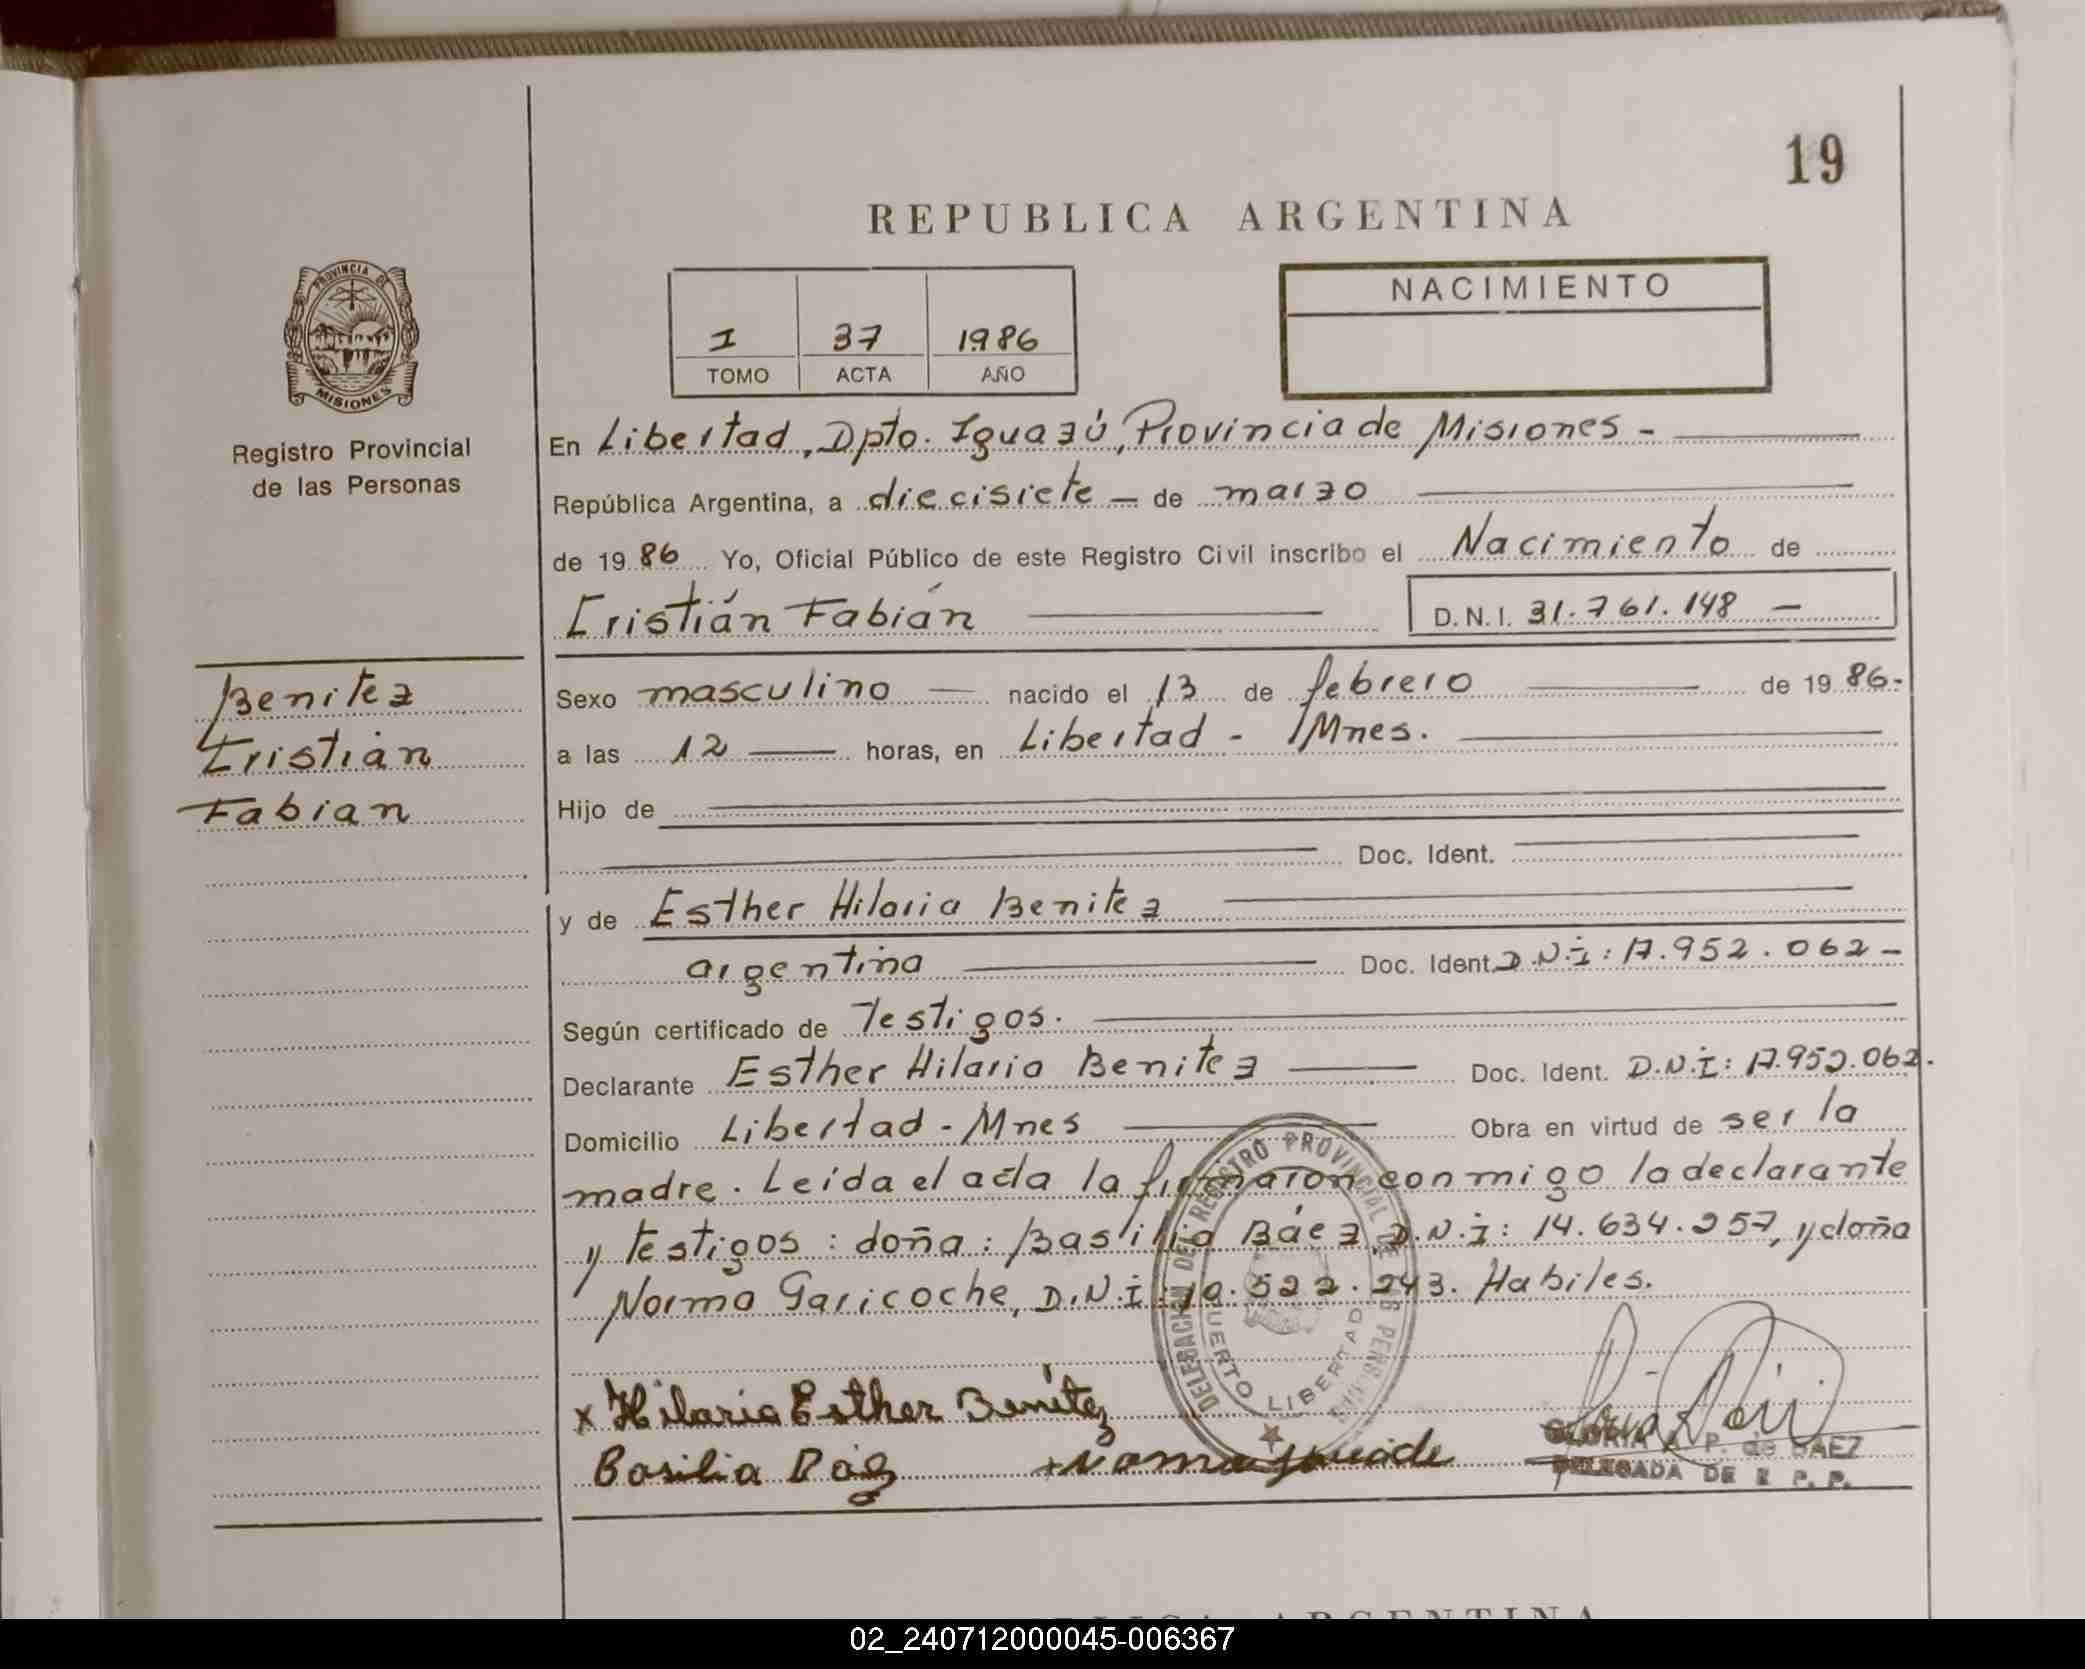 19
REPUBLICA ARGENTINA
PROVINCIA DE
MISIONES
Registro Provincial
de las Personas
I 37 1986
TOMO ACTA AÑO
NACIMIENTO
En Libertad, Dpto. Iguazú, Provincia de Misiones -
República Argentina, a diecisiete - de marzo
de 1986 Yo, Oficial Público de este Registro Civil inscribo el Nacimiento de
Cristián Fabián D.N.I. 31.761.148 -
Benitez
Cristián
Fabian
Sexo masculino — nacido el 13 de febrero de 1986.-
a las 12 — horas, en Libertad - Mnes.
Hijo de
Doc. Ident.
y de Esther Hilaria Benitez
argentina Doc. Ident. D.N.I: 17.952.062 -
Según certificado de Testigos.
Declarante Esther Hilaria Benitez Doc. Ident. D.N.I: 17.952.062.
Domicilio Libertad - Mnes Obra en virtud de ser la
madre. Leída el acta la firmaron conmigo la declarante
y testigos: doña: Basilia Báez, D.N.I: 14.634.257, y doña
Norma Garicoche, D.N.I: 10.522.243. Habiles.
DELEGACION DEL REGISTRO PROVINCIAL DE LAS PERSONAS
PUERTO LIBERTAD
MISIONES
x Hilaria Esther Benítez
Basilia Báez
GLORIA A. P. de BAEZ
DELEGADA DE R. P. P.
02_240712000045-006367